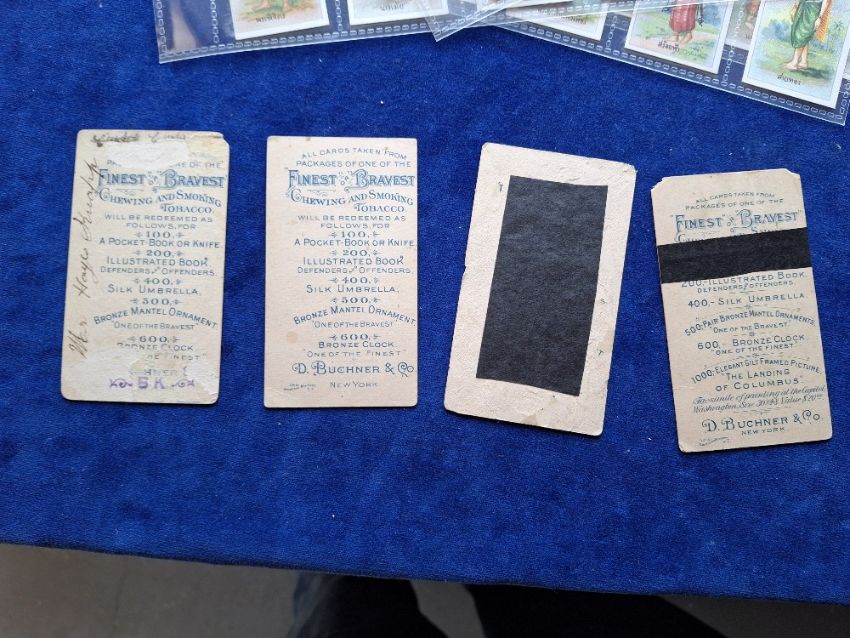 สายทอง
PA
OF THE
FINEST OR BRAVEST
CHEWING AND SMOKING
TOBACCO.
WILL BE REDEEMED AS
FOLLOWS, FOR
100,
A POCKET-BOOK OR KNIFE.
200,
ILLUSTRATED BOOK,
DEFENDERS AND OFFENDERS.
400,
SILK UMBRELLA,
500,
BRONZE MANTEL ORNAMENT,
"ONE OF THE BRAVEST"
600,
BRONZE CLOCK,
"ONE OF THE FINEST"
5K
ALL CARDS TAKEN FROM
PACKAGES OF ONE OF THE
FINEST OR BRAVEST
CHEWING AND SMOKING
TOBACCO.
WILL BE REDEEMED AS
FOLLOWS, FOR
100,
A POCKET-BOOK OR KNIFE.
200,
ILLUSTRATED BOOK,
DEFENDERS AND OFFENDERS.
400,
SILK UMBRELLA,
500,
BRONZE MANTEL ORNAMENT,
"ONE OF THE BRAVEST"
600,
BRONZE CLOCK,
"ONE OF THE FINEST"
D. BUCHNER & CO
NEW YORK.
ALL CARDS TAKEN FROM
PACKAGES OF ONE OF THE
"FINEST OR BRAVEST"
200.-ILLUSTRATED BOOK,
DEFENDERS AND OFFENDERS.
400.- SILK UMBRELLA,
500; PAIR BRONZE MANTEL ORNAMENTS,
"ONE OF THE BRAVEST"
600.- BRONZE CLOCK,
"ONE OF THE FINEST"
1000; ELEGANT GILT FRAMED PICTURE,
"THE LANDING
OF COLUMBUS."
Facsimile of painting at the Capitol,
D. BUCHNER & CO.
NEW YORK.